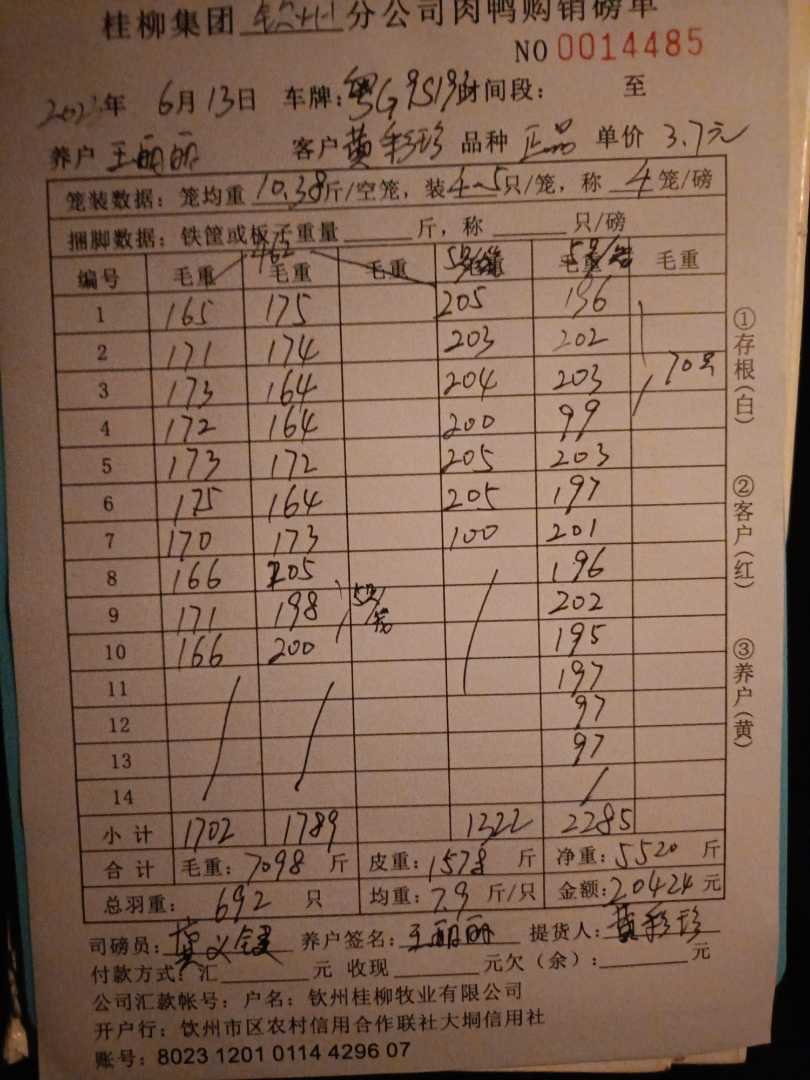 桂柳集团 钦州 分公司肉鸭购销磅单
NO 0014485
2023年 6月13日 车牌: 时间段: 至
养户 王丽丽 客户 黄彩珍 品种 正品 单价 3.7元
笼装数据: 笼均重 10.38斤/空笼, 装4~5只/笼, 称 4 笼/磅
捆脚数据: 铁筐或板子重量 斤, 称 只/磅
编号 毛重 毛重 毛重 毛重 毛重 毛重
1 165 175 205 196
2 171 174 203 202
3 173 164 204 203 70只
4 172 164 200 99
5 173 172 205 203
6 175 164 205 197
7 170 173 100 201
8 166 205 196
9 171 198 5只/笼 202
10 166 200 195
11 197
12 97
13 97
14
小计 1702 1789 1322 2285
合计 毛重: 7098 斤 皮重: 1578 斤 净重: 5520 斤
总羽重: 692 只 均重: 7.9 斤/只 金额: 20424 元
司磅员: 养户签名: 王丽丽 提货人: 黄彩珍
付款方式: 汇 元 收现 元欠(余): 元
公司汇款帐号: 户名: 钦州桂柳牧业有限公司
开户行: 钦州市区农村信用合作联社大垌信用社
账号: 8023 1201 0114 4296 07
①存根(白)
②客户(红)
③养户(黄)